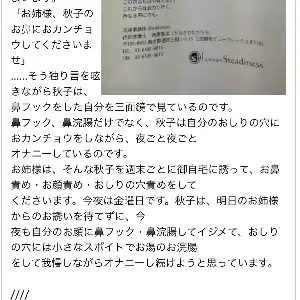 「お姉様、秋子の
お鼻におカンチョ
ウしてくださいま
せ」
……そう独り言を呟
きながら秋子は、
鼻フックをした自分を三面鏡で見ているのです。
鼻フック、鼻浣腸だけでなく、秋子は自分のおしりの穴に
おカンチョウをしながら、夜ごと夜ごと
オナニーしているのです。
お姉様は、そんな秋子を週末ごとに御自宅に誘って、お鼻
責め・お顔責め・おしりの穴責めをして
くださいます。今夜は金曜日です。秋子は、明日のお姉様
からのお誘いを待てずに、今
夜も自分のお顔に鼻フック・鼻浣腸してイジメて、おしり
の穴には小さなスポイトでお湯のお浣腸
をして我慢しながらオナニーし続けようと思っています。
////
Steadiness